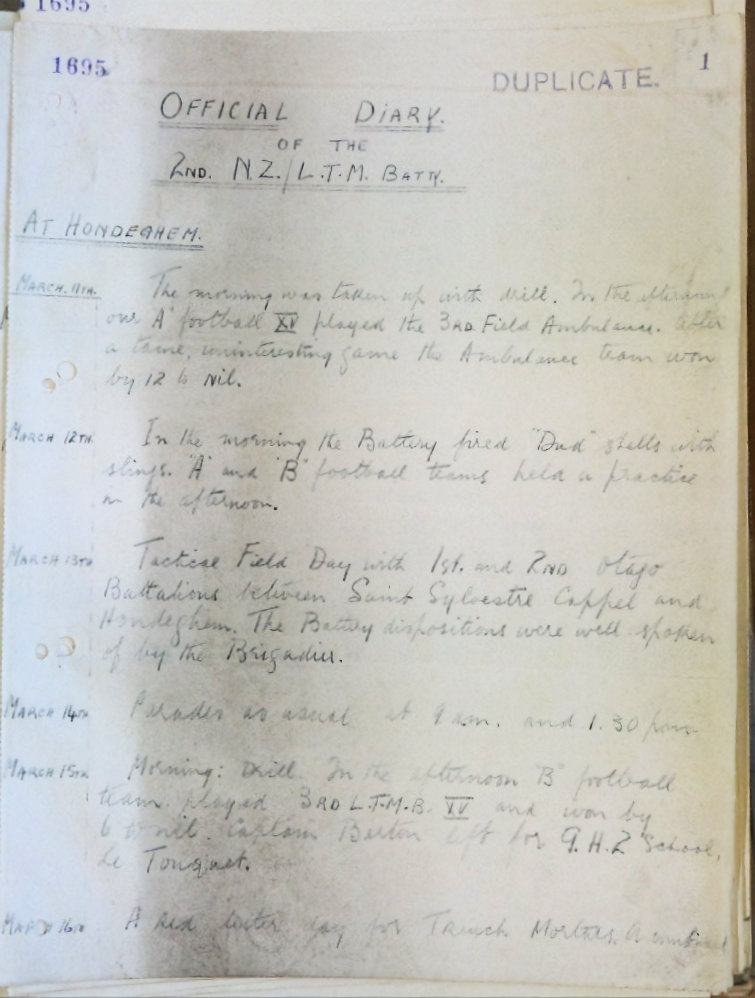 1695
1695
DUPLICATE.
1
OFFICIAL DIARY.
OF THE
2ND. N.Z./L.T.M. BATTY.
AT HONDEGHEM.
MARCH. 11TH. The morning was taken up with drill. In the afternoon
our "A" football XV played the 3RD Field Ambulance. After
a tame, uninteresting game the Ambulance team won
by 12 to Nil.
MARCH 12TH. In the morning the Battery fired "Dud" shells with
slings. "A" and "B" football teams held a practice
in the afternoon.
MARCH 13TH Tactical Field Day with 1st. and 2ND Otago
Battalions between Saint Sylvestre Cappel and
Hondeghem. The Battery dispositions were well spoken
of by the Brigadier.
MARCH 14TH Parades as usual at 9 am. and 1.30 pm
MARCH 15TH Morning: Drill. In the afternoon "B" football
team played 3RD L.T.M.B. XV and won by
6 to nil. Captain left for G.H.Q School,
Le Touquet.
MARCH 16TH A red letter day for Trench Mortars. A combined